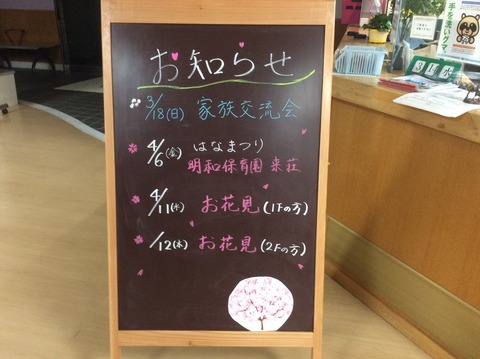 お知らせ
3/18(日) 家族交流会
4/6(金) はなまつり
明和保育園 来荘
4/11(水) お花見 (1Fの方)
/12(木) お花見 (2Fの方)
手を洗いクマ